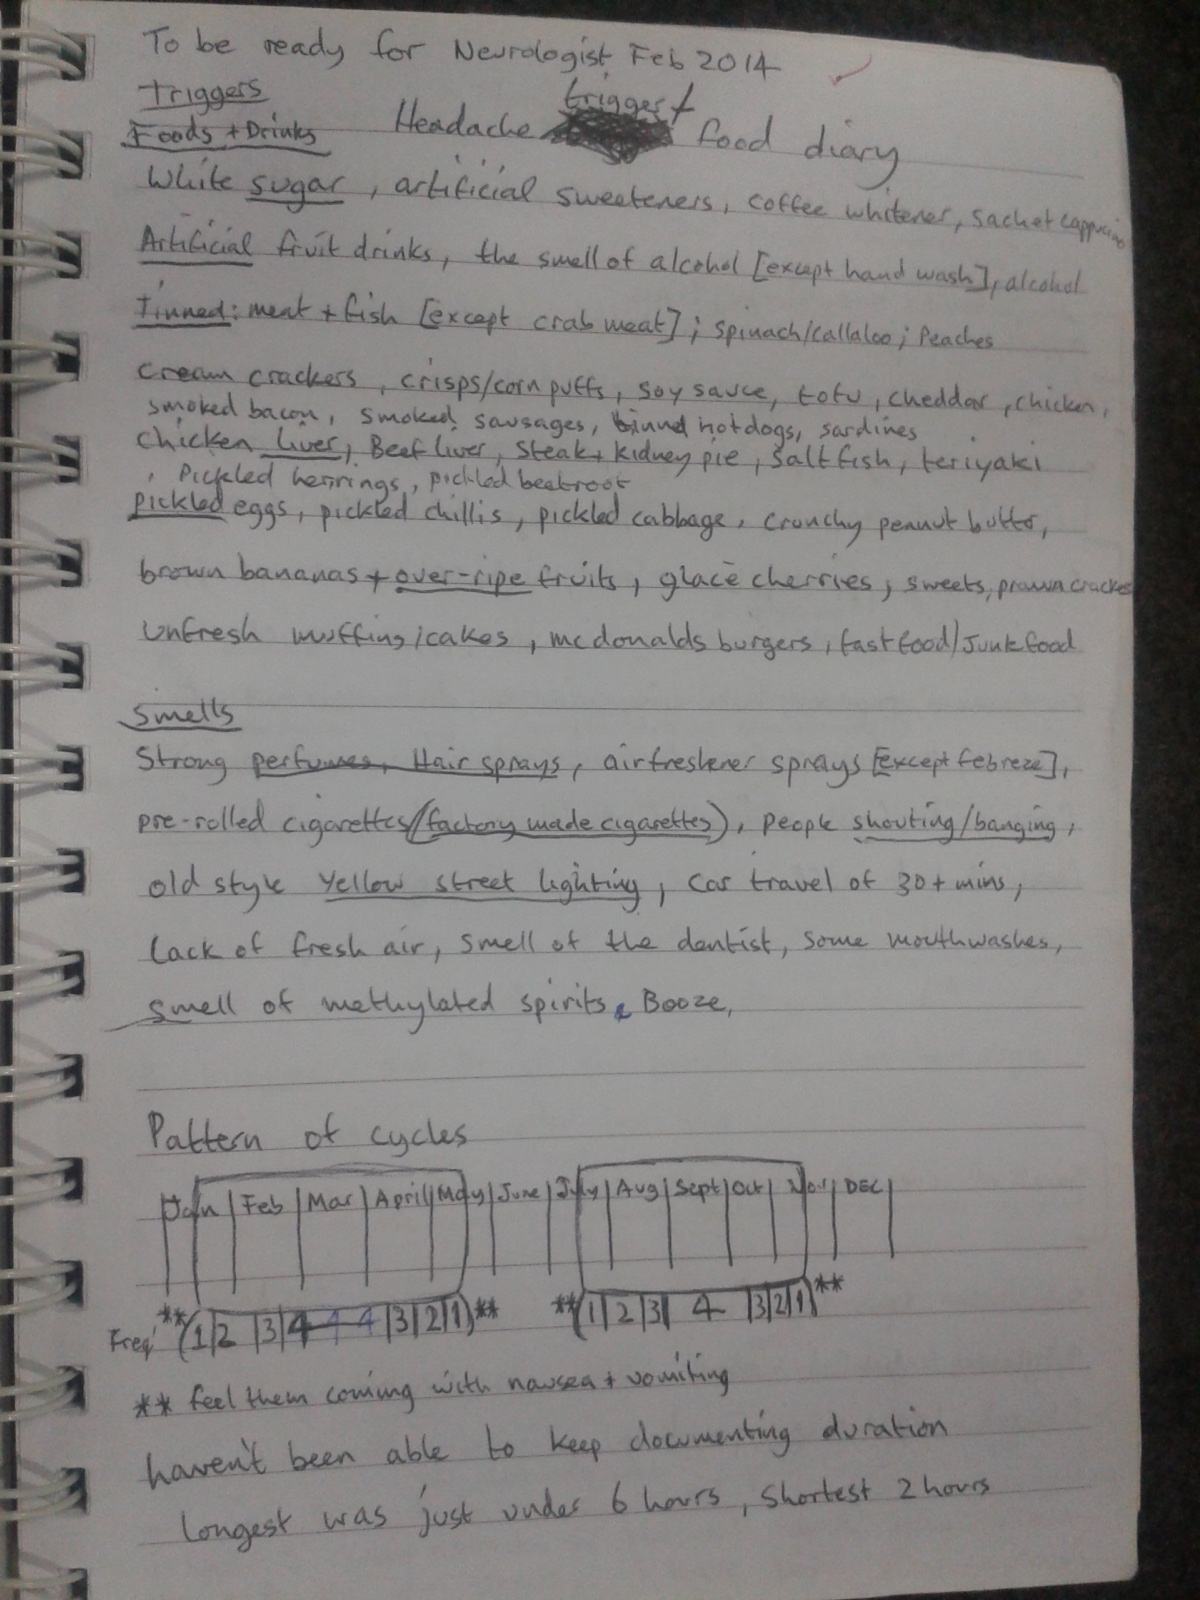 To be ready for Neurologist Feb 2014
Triggers
Foods + Drinks
Headache trigger + food diary
White sugar, artificial sweeteners, coffee whitener, sachet cappucino
Artificial fruit drinks, the smell of alcohol [except hand wash], alcohol
Tinned: meat + fish [except crab meat]; spinach/callaloo; Peaches
cream crackers, crisps/corn puffs, soy sauce, tofu, cheddar, chicken,
smoked bacon, smoked sausages, tinned hotdogs, sardines
chicken liver, Beef liver, Steak + kidney pie, Saltfish, teriyaki
, Pickled herrings, pickled beetroot
pickled eggs, pickled chillis, pickled cabbage, crunchy peanut butter,
brown bananas + over-ripe fruits, glacé cherries, sweets, prawn crackers
Unfresh muffins/cakes, mcdonalds burgers, fast food/Junk food
Smells
Strong perfumes, Hair sprays, air freshener sprays [except febreze],
pre-rolled cigarettes/(factory made cigarettes), people shouting/banging,
old style Yellow street lighting, Car travel of 30+ mins,
Lack of fresh air, smell of the dentist, some mouthwashes,
Smell of methylated spirits, Booze,
Pattern of cycles
Jan Feb Mar April May June July Aug Sept Oct Nov DEC
Freq' **(1 2 3 4 4 4 3 2 1)** **(1 2 3 4 3 2 1)**
** feel them coming with nausea + vomiting
haven't been able to keep documenting duration
Longest was just under 6 hours, shortest 2 hours